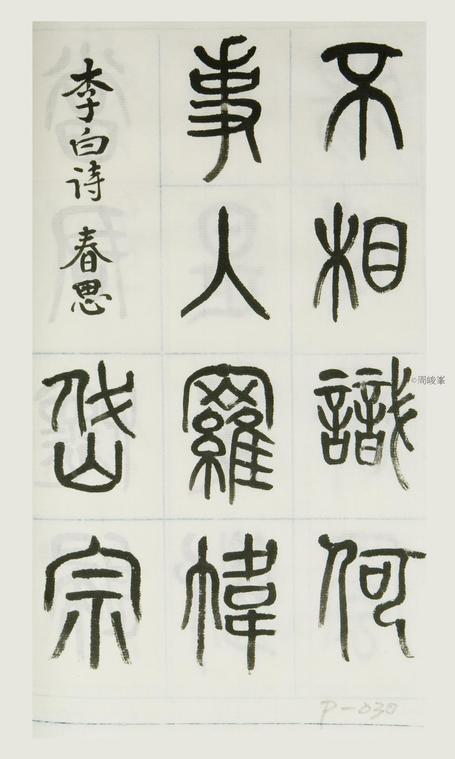 不相識何
事入羅幃
李白诗 春思
岱宗
©周峻峯
P-030